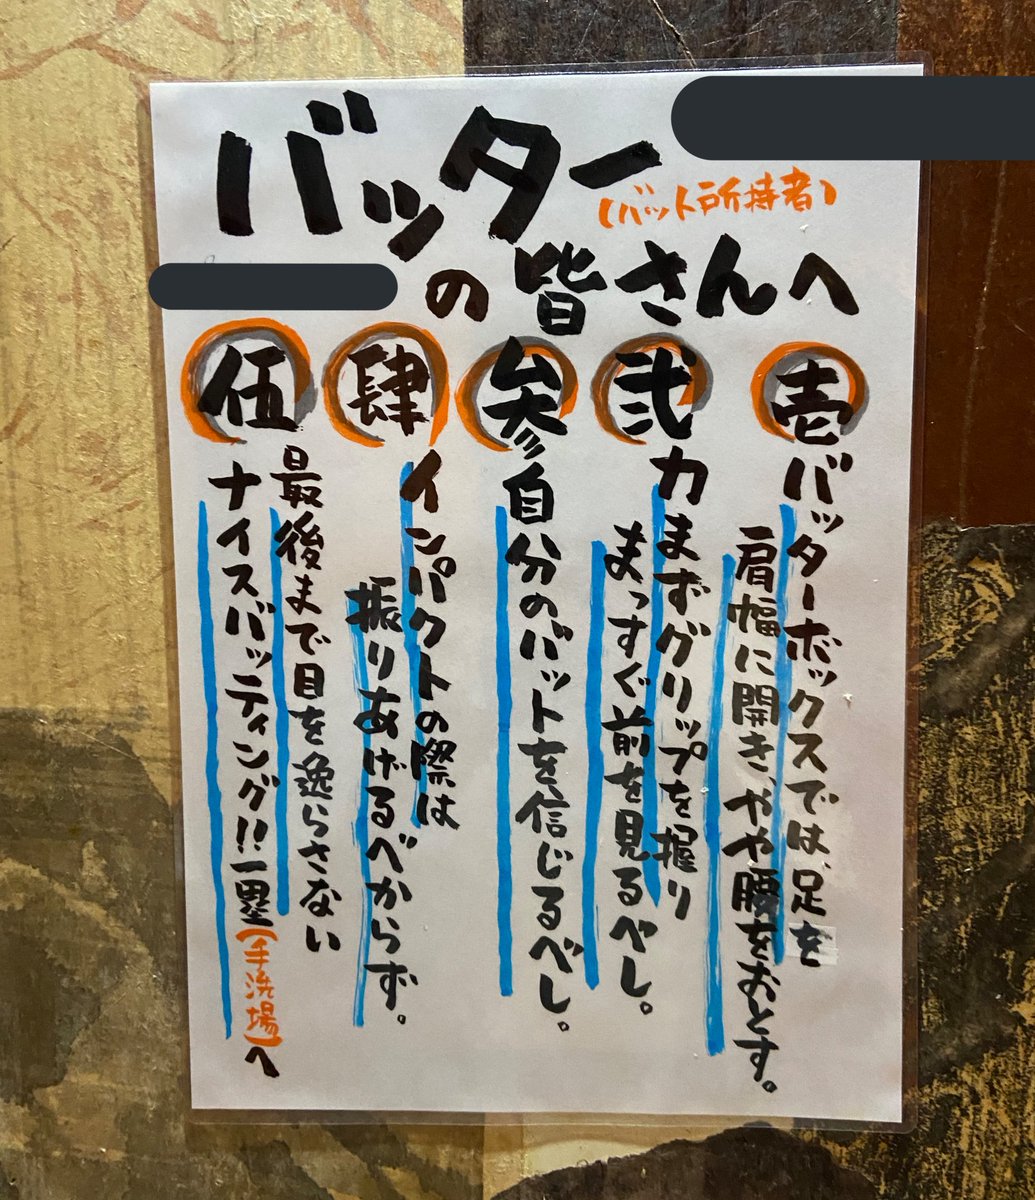 バッター
(バット所持者)
の皆さんへ
壱
バッターボックスでは、足を
肩幅に開き、やや腰をおとす。
弐
力まずグリップを握り
まっすぐ前を見るべし。
参
自分のバットを信じるべし。
肆
インパクトの際は
振りあげるべからず。
伍
最後まで目を逸らさない
ナイスバッティング!!一塁(手洗場)へ